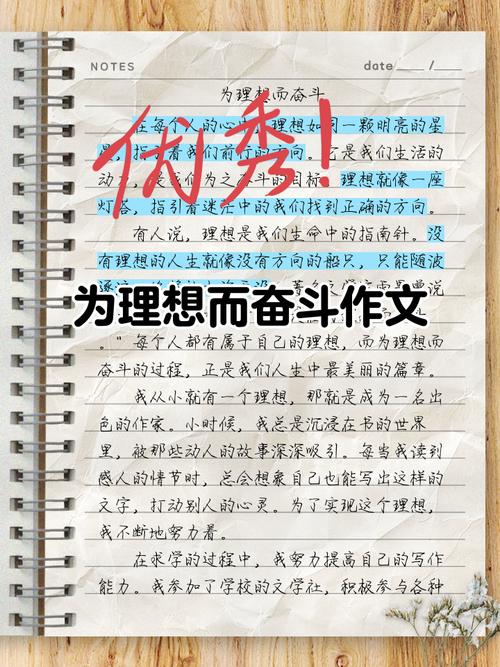 NOTES
date /
为理想而奋斗
优秀！
在每个人的心中，理想如同一颗明亮的星
星，指引着我们前行的方向。它是我们生活的
动力，是我们为之奋斗的目标。理想就像一座
灯塔，指引着迷茫中的我们找到正确的方向。
有人说，理想是我们生命中的指南针。没
有理想的人生就像没有方向的船只，只能随波
为理想而奋斗作文
。”每个人都有属于自己的理想，而为理想而
奋斗的过程，正是我们人生中最美丽的篇章。
我从小就有一个理想，那就是成为一名出
色的作家。小时候，我总是沉浸在书的世界
里，被那些动人的故事深深吸引。每当我读到
感人的情节时，总会想象自己也能写出这样的
文字，打动别人的心灵。为了实现这个理想，
我不断地努力着。
在求学的过程中，我努力提高自己的写作
能力。我参加了学校的文学社，积极参与各种